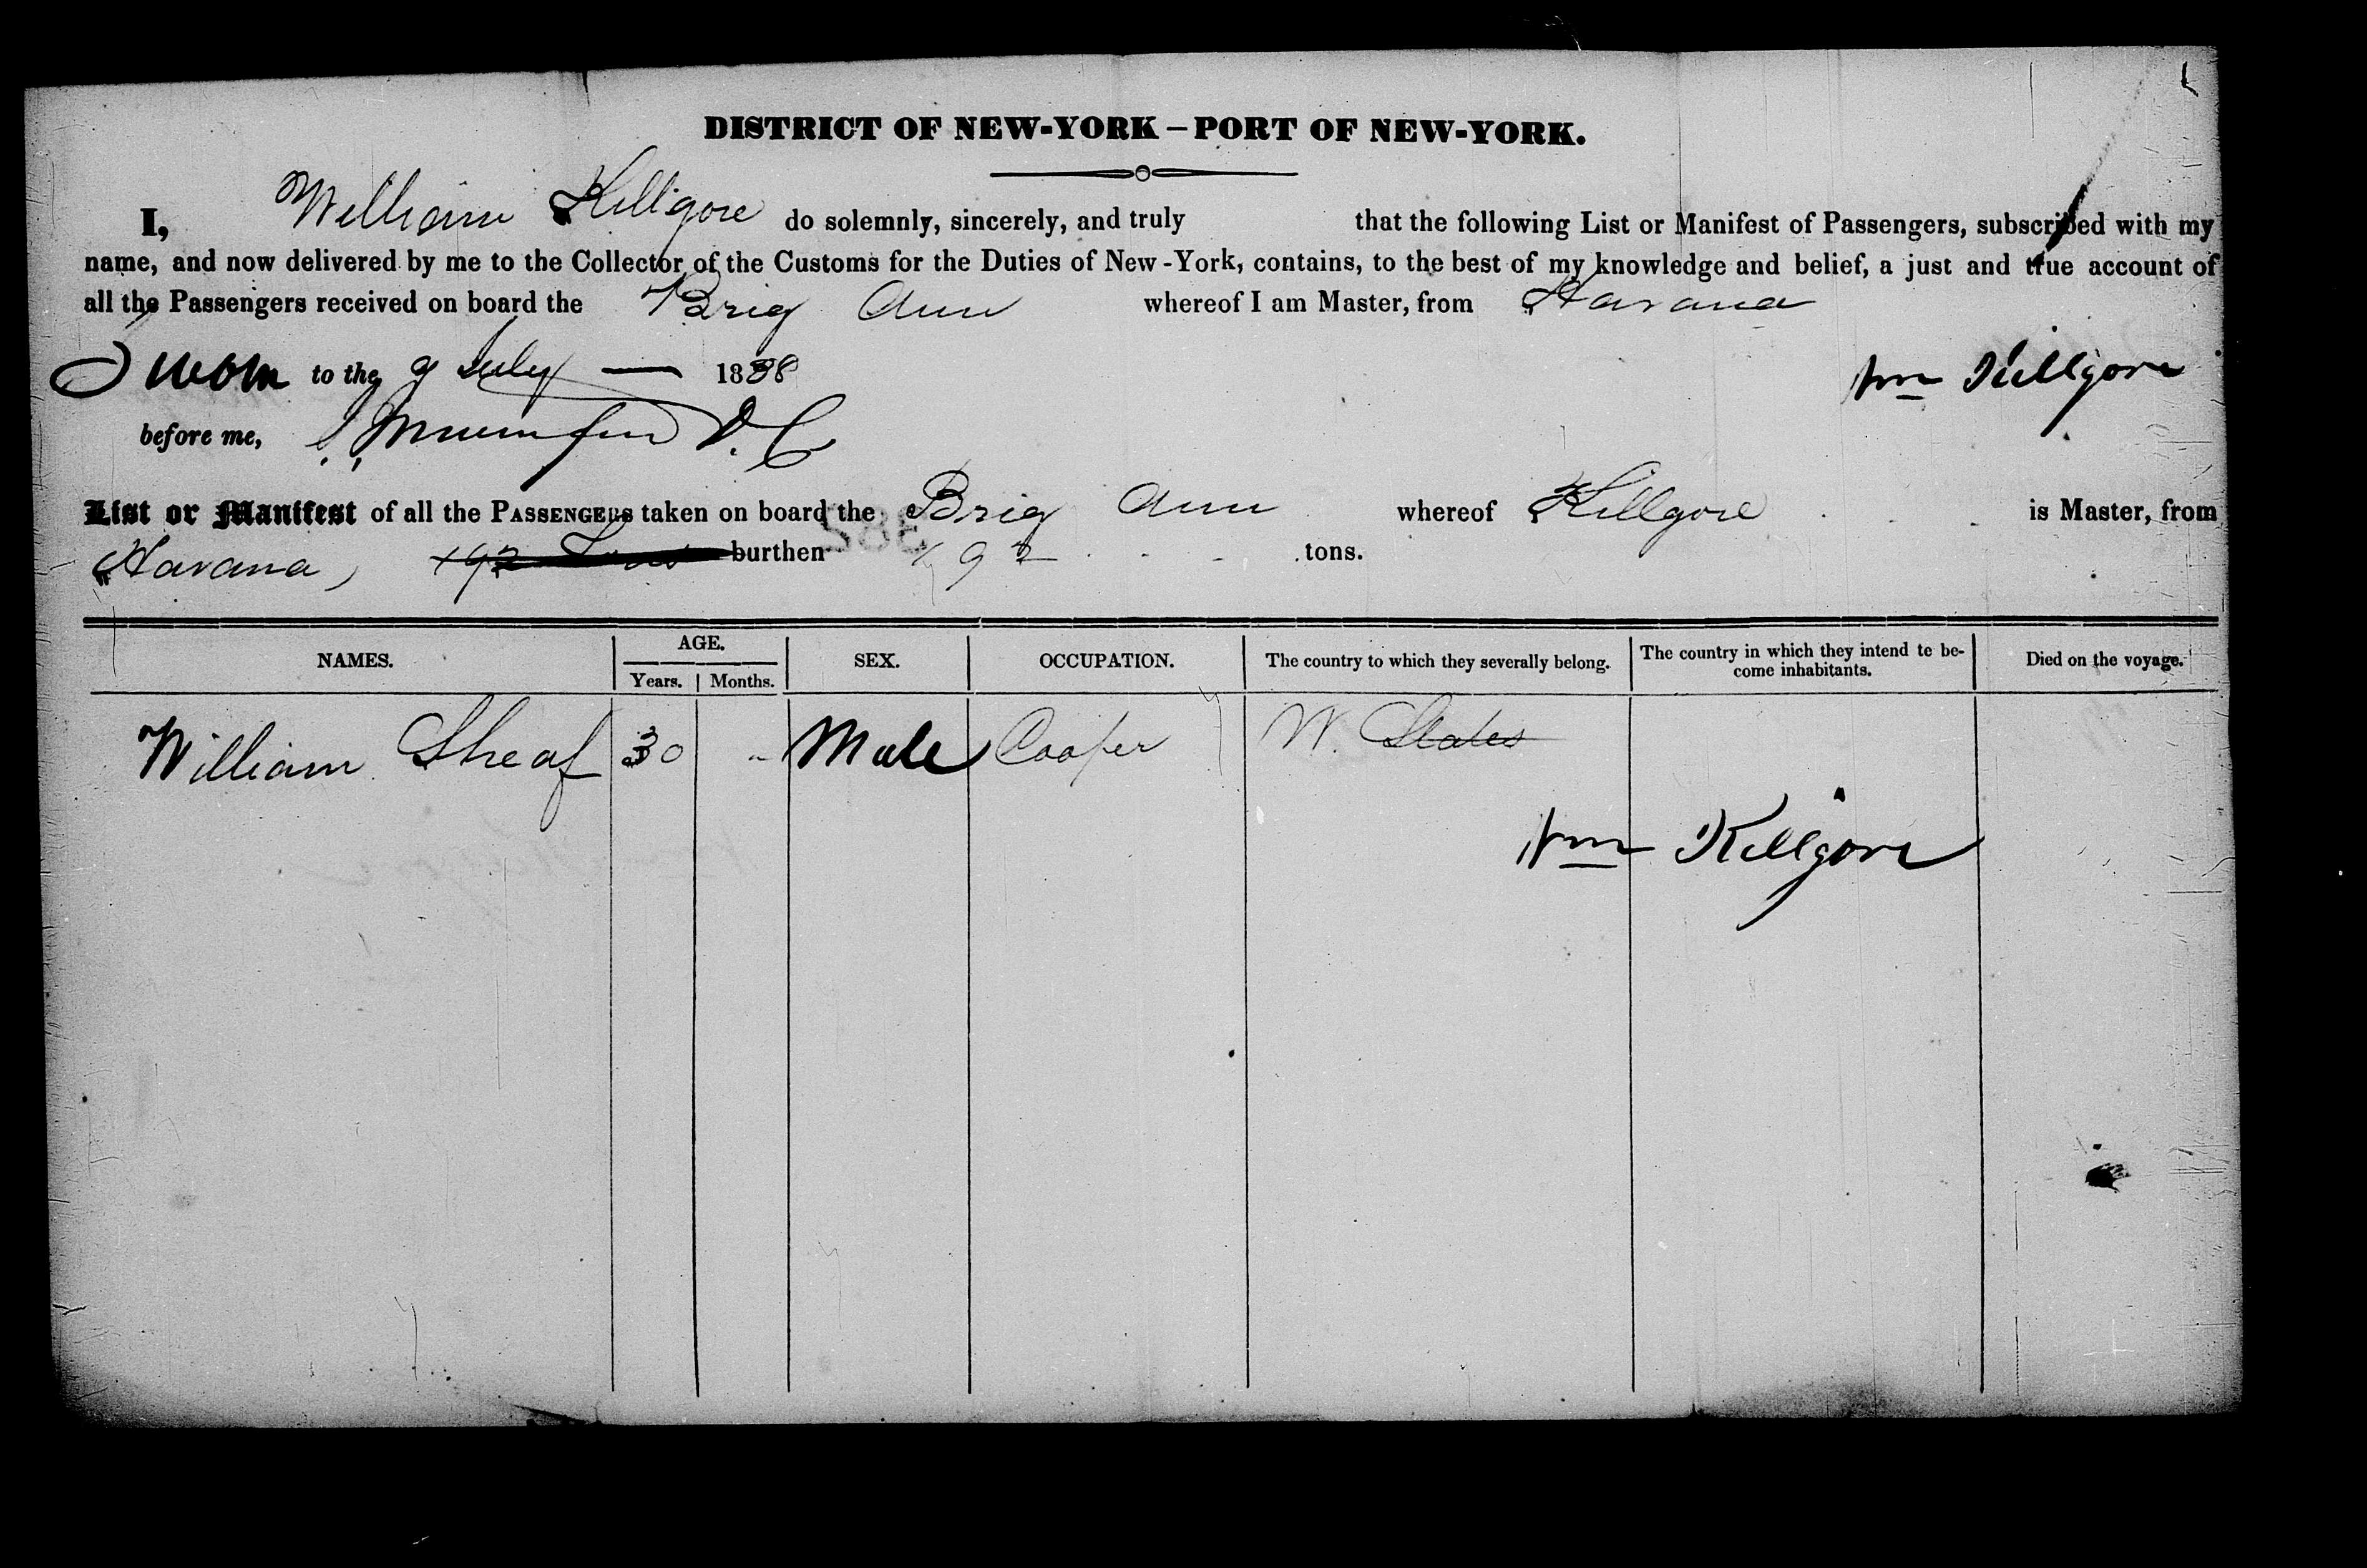 DISTRICT OF NEW-YORK – PORT OF NEW-YORK.
I, William Killgore do solemnly, sincerely, and truly that the following List or Manifest of Passengers, subscribed with my
name, and now delivered by me to the Collector of the Customs for the Duties of New-York, contains, to the best of my knowledge and belief, a just and true account of
all the Passengers received on board the Brig Ann whereof I am Master, from Havana
Sworn to the 9 July — 1838 Wm Killgore
before me, D. C
List or Manifest of all the PASSENGERS taken on board the Brig Ann whereof Killgore is Master, from
Havana, burthen 192 tons.
NAMES. AGE. Years. Months. SEX. OCCUPATION. The country to which they severally belong. The country in which they intend te become inhabitants. Died on the voyage.
William Sheaf 30 " Male Cooper States
Wm Killgore